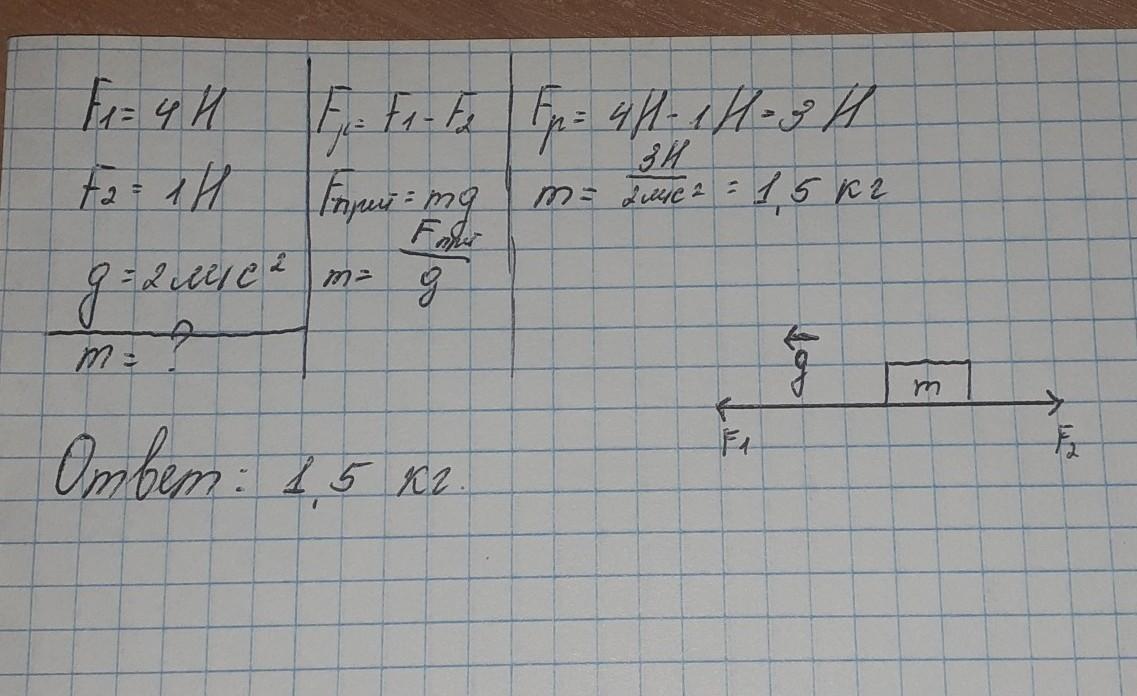 F1 = 4 Н
F2 = 1 Н
g = 2 м/с²
m = ?
Fр = F1 - F2
Fтяж = mg
m = Fтяж / g
Fр = 4Н - 1 Н = 3 Н
m = 3Н / 2м/с² = 1,5 кг
g
m
F1
F2
Ответ: 1,5 кг.